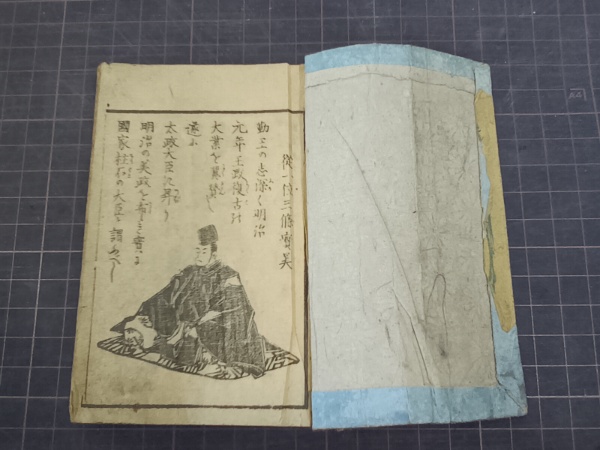 從一位三條實美
勤王の志深く明治
元年王政復古の
大業を翼賛し
遂に
太政大臣に昇り
明治の美政を布き實に
國家柱石の大臣と謂べし